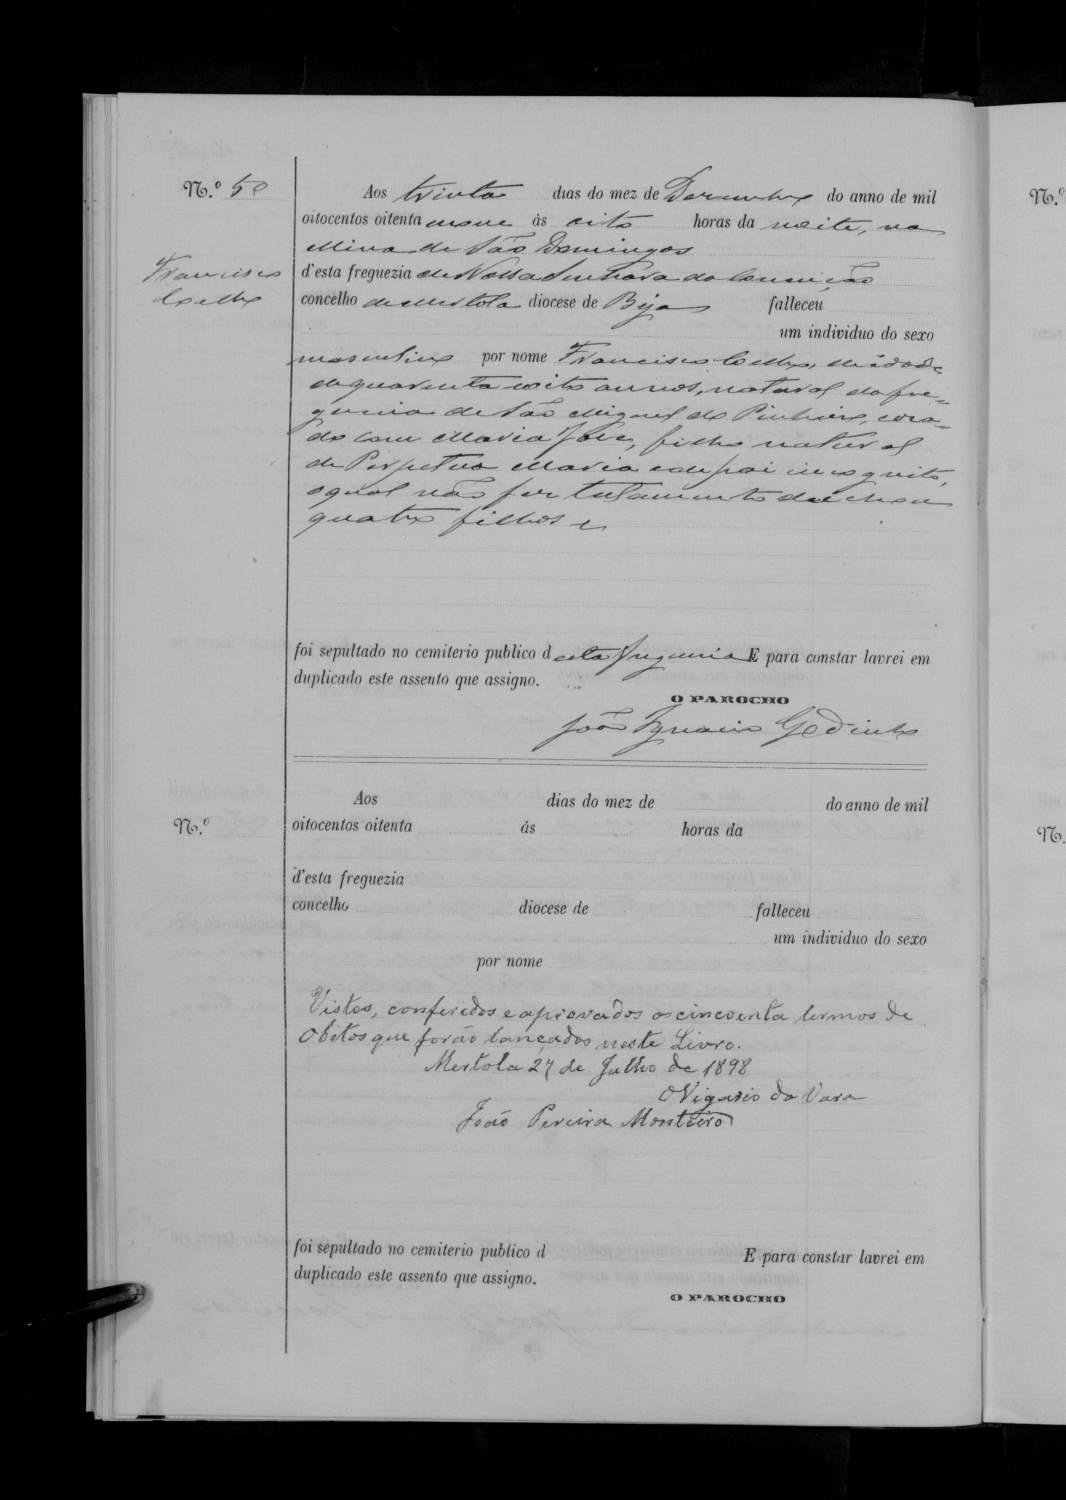 N.º 50
Aos trinta dias do mez de Dezembro do anno de mil
oitocentos oitenta nove ás oito horas da noite, na
Mina de São Domingos
Francisco
Coelho
d'esta freguezia de Nossa Senhora da Conceição
concelho de Mertola diocese de Beja falleceu
um individuo do sexo
masculino por nome Francisco Coelho, de idade
de quarenta oito annos, natural da fre-
guezia de São Miguel do Pinheiro, casa-
do com Maria José, filho natural
de Perpetua Maria e de pai incognito,
o qual não fez testamento deixou
quatro filhos e
foi sepultado no cemiterio publico d esta freguezia E para constar lavrei em
duplicado este assento que assigno.
O PAROCHO
João Ignacio Godinho
N.º
Aos dias do mez de do anno de mil
oitocentos oitenta ás horas da
d'esta freguezia
concelho diocese de falleceu
um individuo do sexo
por nome
Vistos, conferidos e aprovados os cincoenta termos de
Obitos que forão lançados neste Livro.
Mertola 27 de Julho de 1898
O Vigario da Vara
João Pereira Monteiro
foi sepultado no cemiterio publico d E para constar lavrei em
duplicado este assento que assigno.
O PAROCHO
N.º
N.